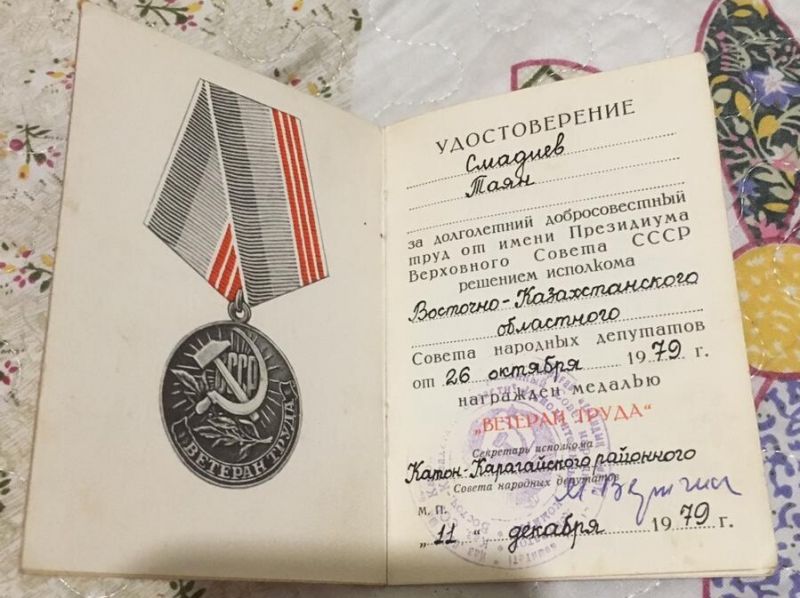 СССР
ВЕТЕРАН ТРУДА
УДОСТОВЕРЕНИЕ
Смадиев
Таян
за долголетний добросовестный
труд от имени Президиума
Верховного Совета СССР
решением исполкома
Восточно-Казахстанского
областного
Совета народных депутатов
от 26 октября 1979 г.
награжден медалью
„ВЕТЕРАН ТРУДА“
Секретарь исполкома
Катон-Карагайского районного
Совета народных депутатов
М. П.
„11“ декабря 1979 г.